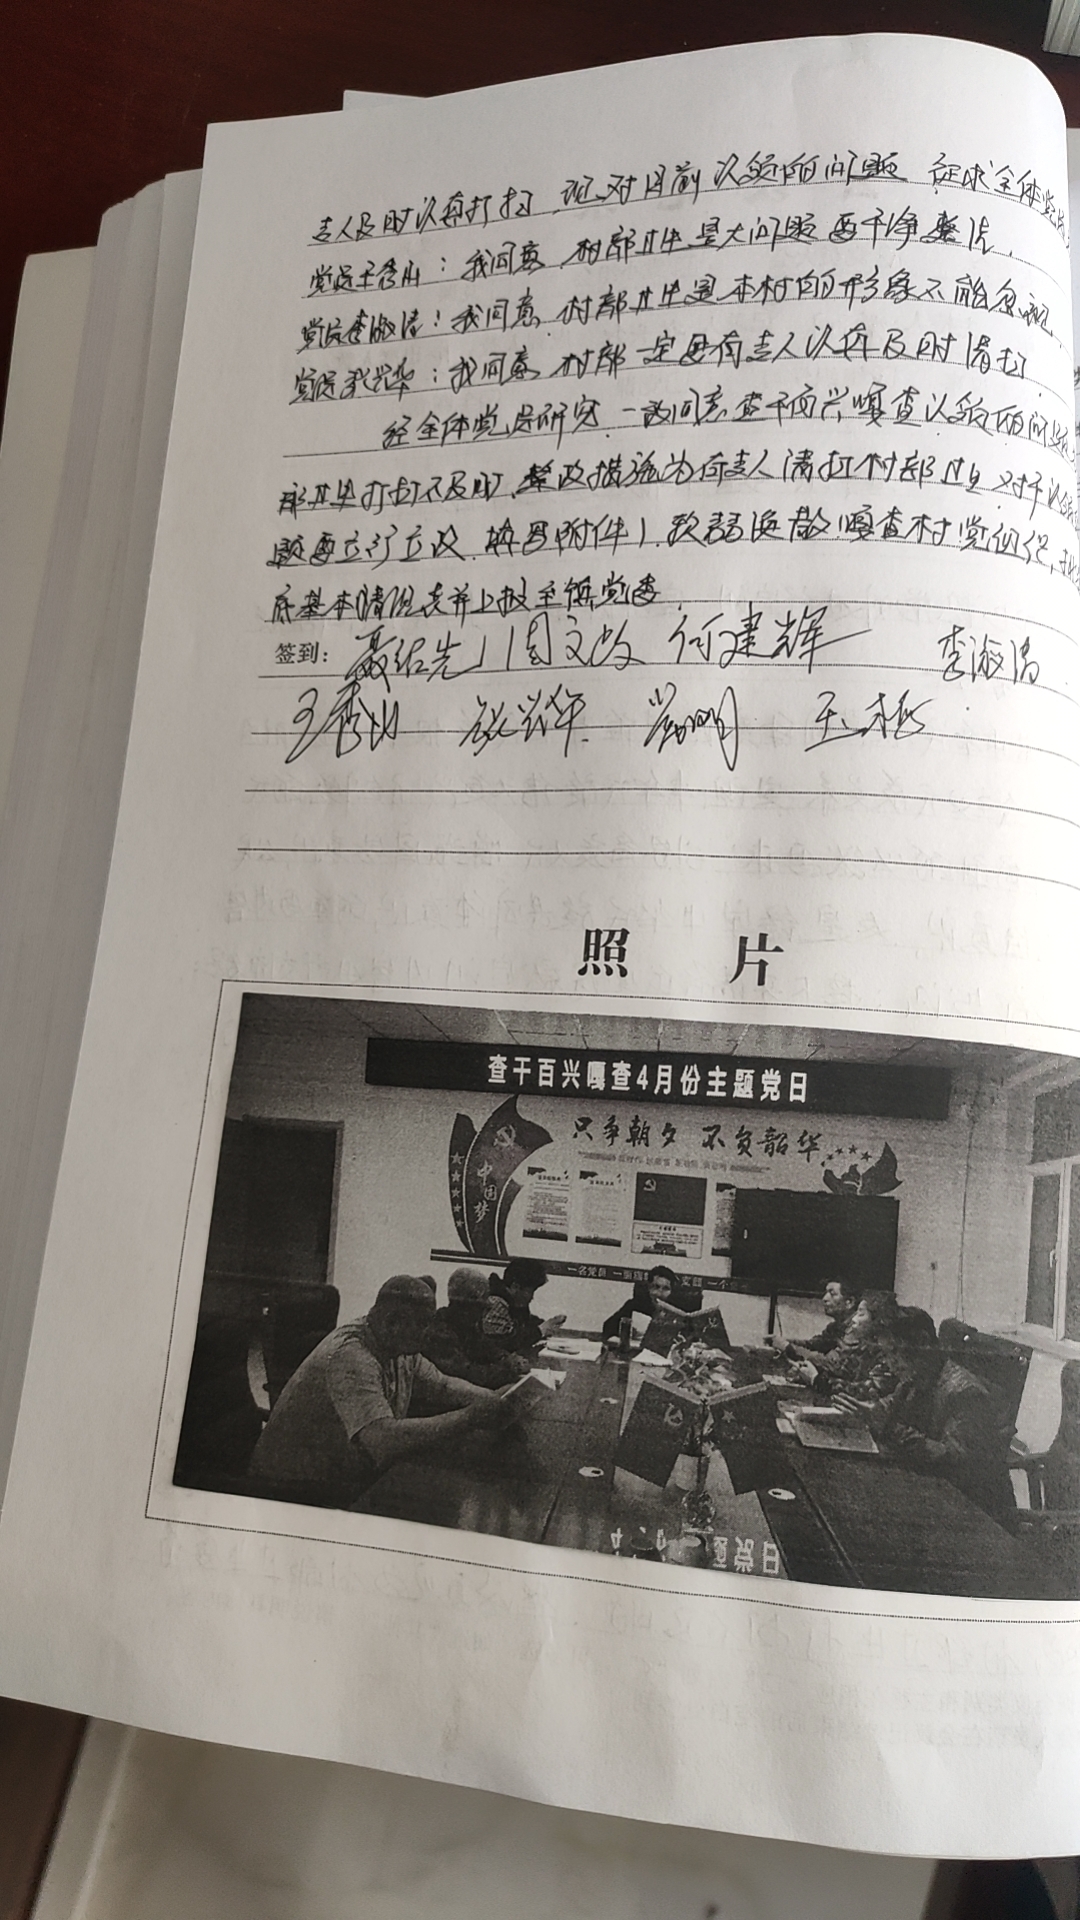 专人及时认真打扫,现对目前认领的问题 征求全体党员
党员王秀山:我同意,村部卫生是大问题要干净整洁.
党员李淑清:我同意,村部卫生是本村的形象不能忽视
党员张兴华:我同意,村部一定要有专人认真及时清扫
经全体党员研究,一致同意查干百兴嘎查认领的问题
部卫生打扫不及时,整改措施为有专人清扫村部卫生,对于认领
题要立行立改,嘎查村党组织
底基本情况表并上报至镇党委
签到: 周文 何建辉 李淑清
王秀山 张兴华
照 片
查干百兴嘎查4月份主题党日
只争朝夕 不负韶华
中国梦
一名党员 一面旗
党日